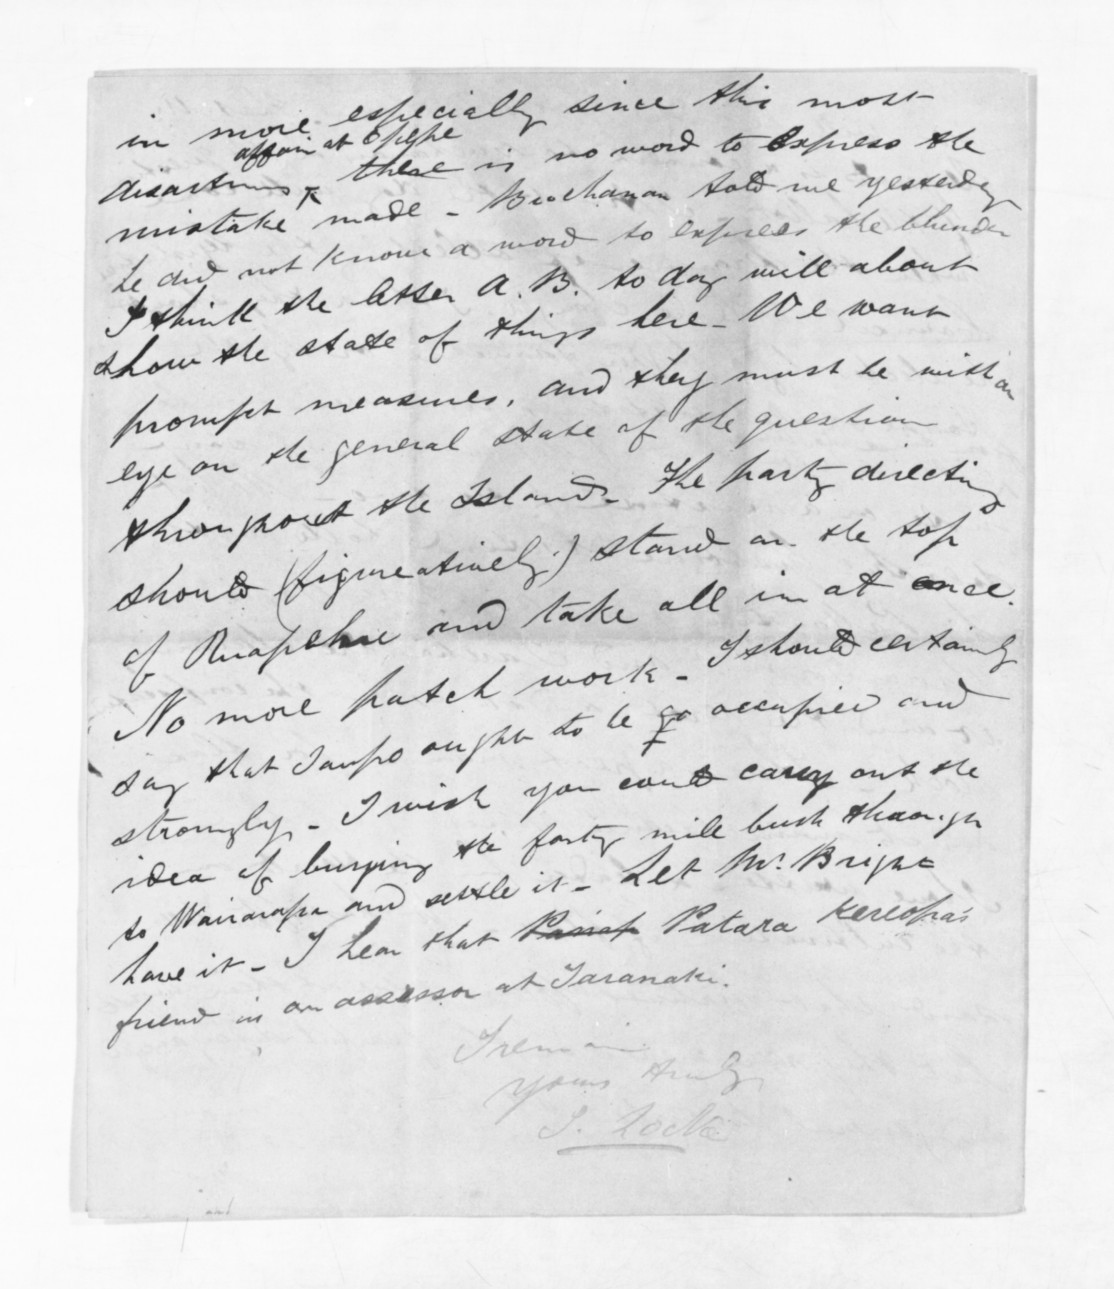 in more especially since this most
affair at Opepe
disastrous there is no word to express the
mistake made - Buchanan told me yesterday
he did not know a word to express the blunder
I think the letter A.B. to day will about
show the state of things here - We want
prompt measures, and they must be with an
eye on the general state of the question
throughout the Island. The party directing
should (figureatively) stand on the top
of Ruapehu and take all in at once.
No more patch work - I should certainly
say that Taupo ought to be occupied and
strongly - I wish you could carry out the
idea of burying the forty mile bush through
to Wairarapa and settle it - Let Mr. Bright
have it - I hear that Patara Kereopa's
friend is an assessor at Taranaki.
I remain
Yours truly
S. Locke